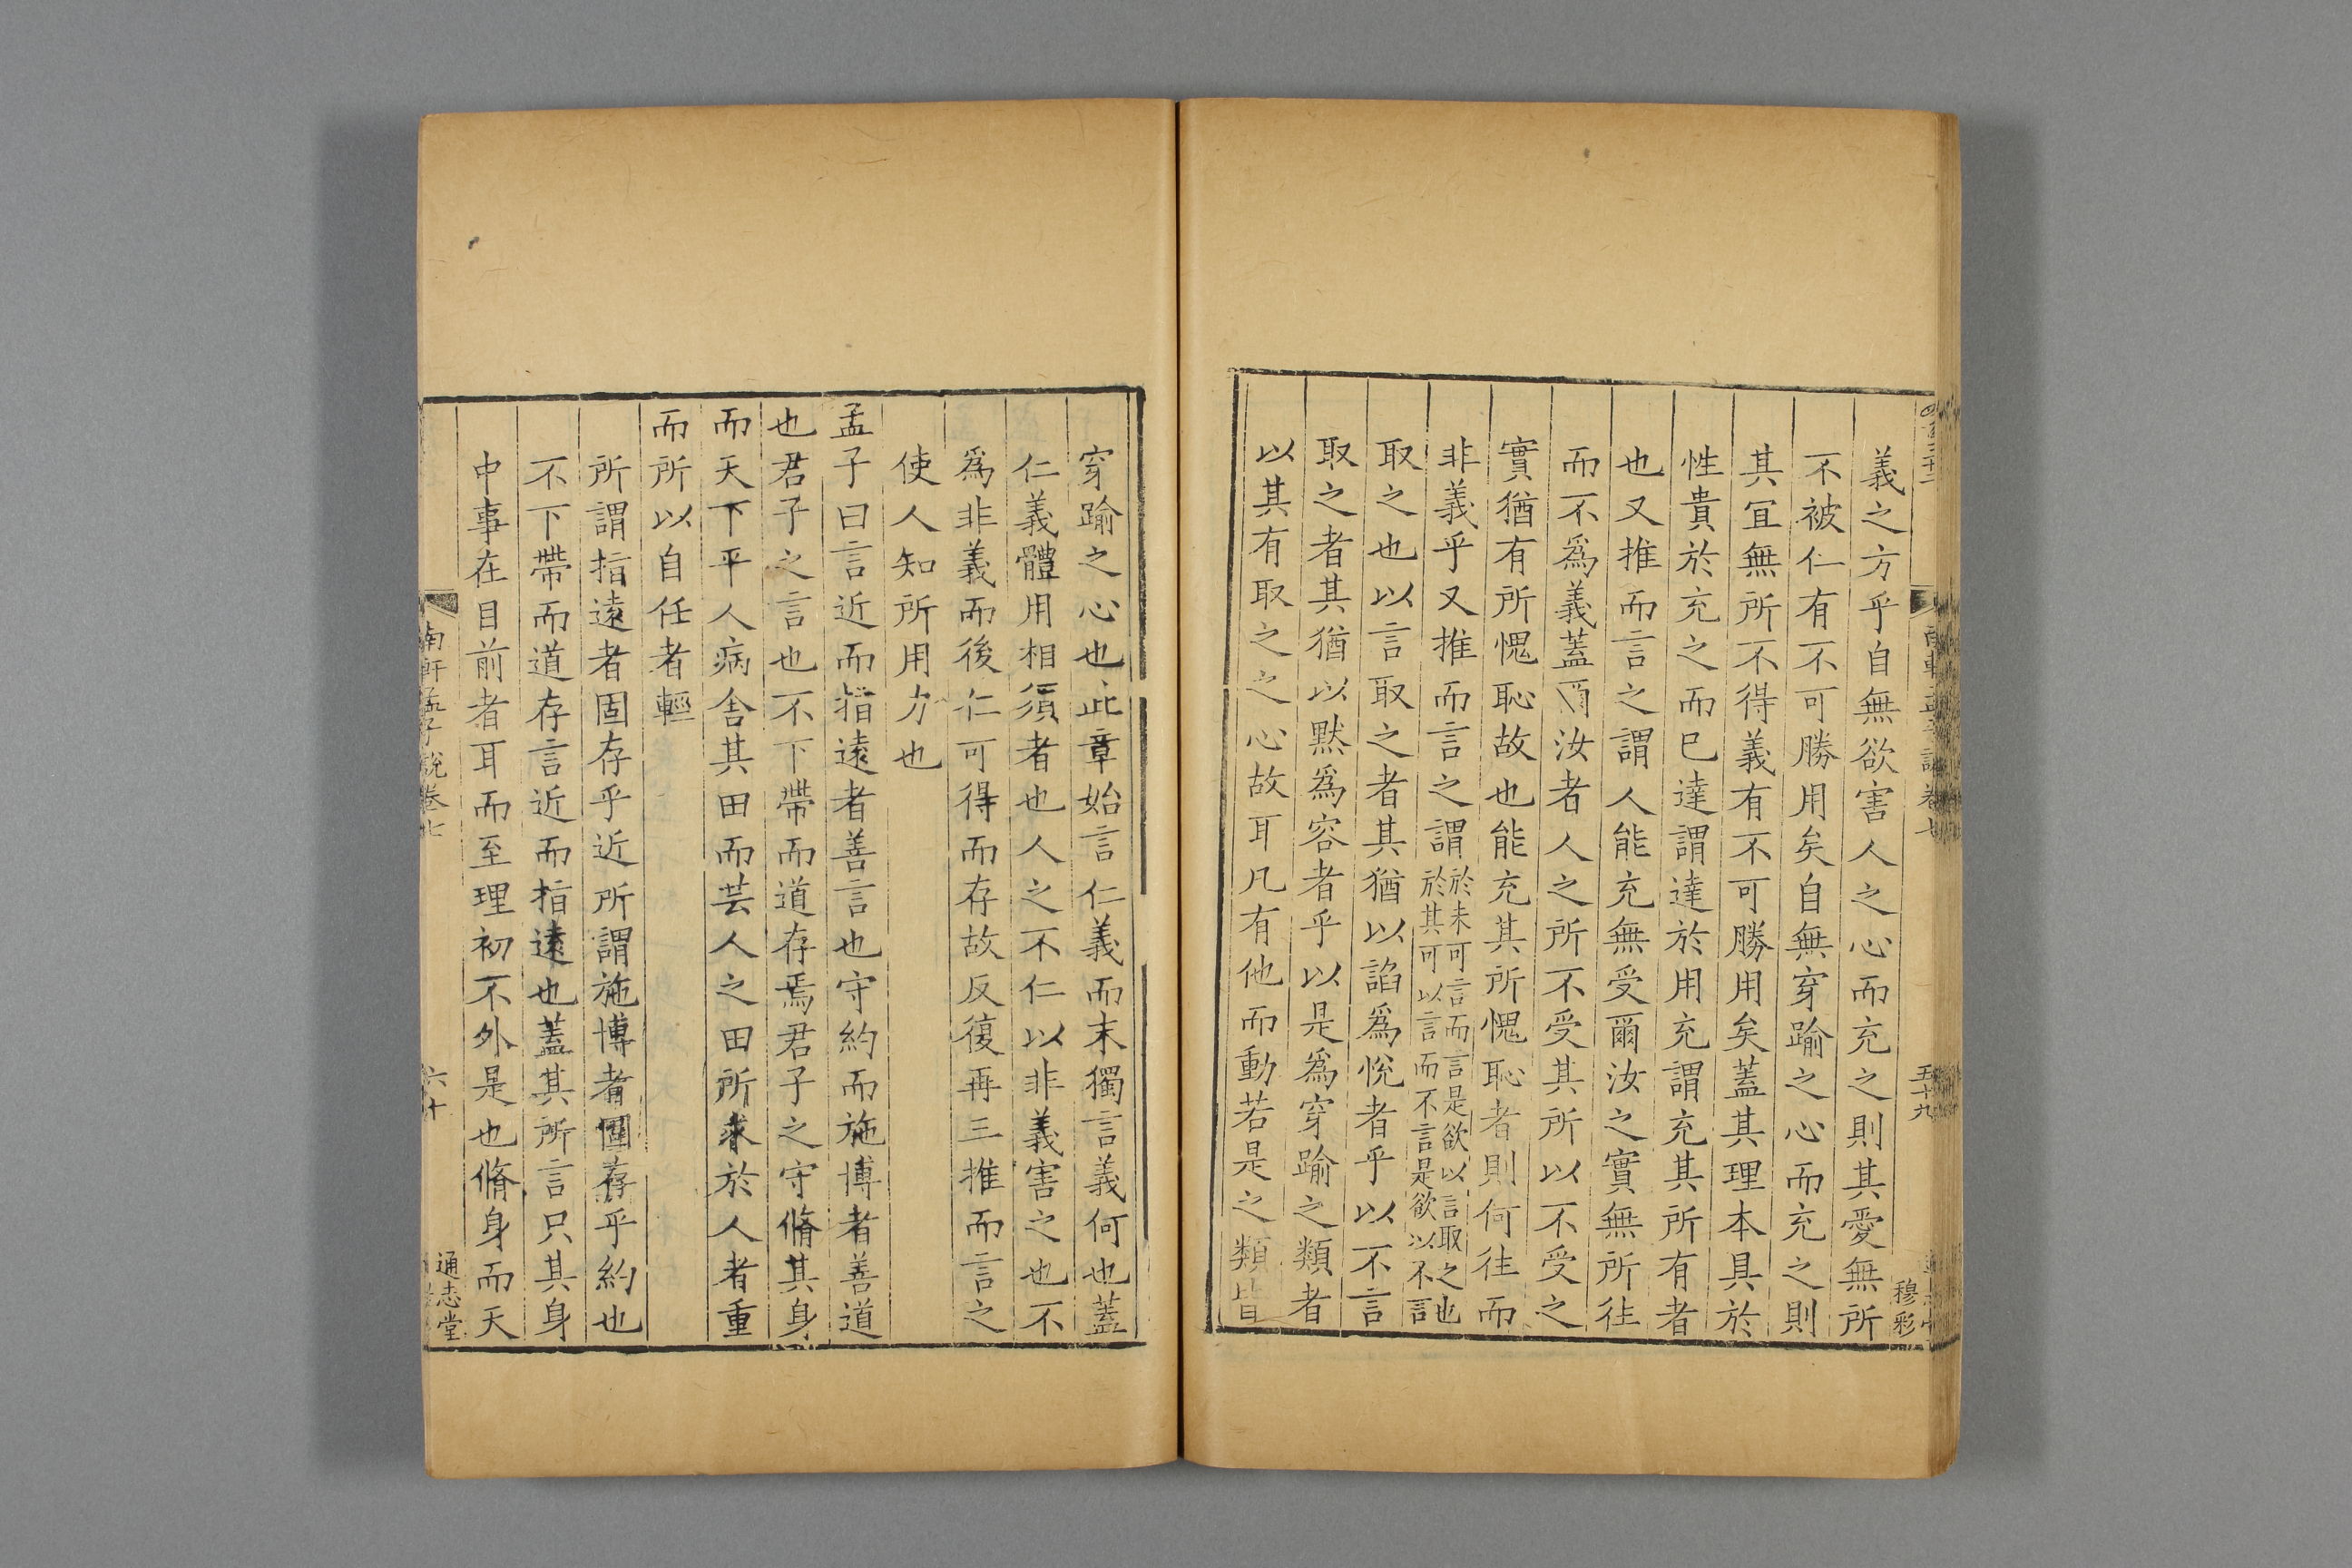 義之方乎自無欲害人之心而充之則其愛無所
不被仁有不可勝用矣自無穿踰之心而充之則
其宜無所不得義有不可勝用矣蓋其理本具於
性貴於充之而已達謂達於用充謂充其所有者
也又推而言之謂人能充無受爾汝之實無所徃
而不爲義蓋爾汝者人之所不受其所以不受之
實猶有所愧恥故也能充其所愧恥者則何徃而
非義乎又推而言之謂
於未可言而言是欲以言取之也
於其可以言而不言是欲以不言
取之也以言取之者其猶以諂爲悅者乎以不言
取之者其猶以默爲容者乎以是爲穿踰之類者
以其有取之之心故耳凡有他而動若是之類皆
五十九
穆彩
穿踰之心也此章始言仁義而末獨言義何也蓋
仁義體用相須者也人之不仁以非義害之也不
爲非義而後仁可得而存故反復再三推而言之
使人知所用力也
孟子曰言近而指遠者善言也守約而施博者善道
也君子之言也不下帶而道存焉君子之守脩其身
而天下平人病舍其田而芸人之田所求於人者重
而所以自任者輕
所謂指遠者固存乎近所謂施博者固存乎約也
不下帶而道存言近而指遠也蓋其所言只其身
中事在目前者耳而至理初不外是也脩身而天
南軒孟子說卷七
六十
通志堂